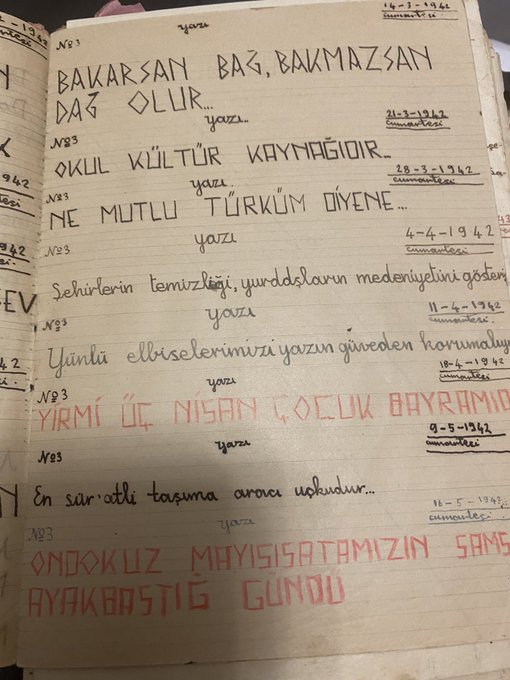 14-3-1942
yazı
cumartesi
№3
BAKARSAN BAĞ, BAKMAZSAN
DAĞ OLUR...
21-3-1942
yazı..
cumartesi
№3
OKUL KÜLTÜR KAYNAĞIDIR...
28-3-1942
yazı.
cumartesi
№3
NE MUTLU TÜRKÜM DİYENE...
4-4-1942
yazı
cumartesi
№3
Şehirlerin temizliği, yurddşların medeniyetini göster
11-4-1942
yazı
cumartesi
№3
Yünlü elbiselerimizi yazın güveden korumalıyı
18-4-1942
yazı
cumartesi
№3
YİRMİ ÜÇ NİSAN ÇOCUK BAYRAMID
9-5-1942
yazı
cumartesi
№3
En sür'atli taşıma aracı uçkudur...
16-5-1942
yazı
cumartesi
№3
ONDOKUZ MAYISISATAMIZIN SAMS
AYAKBASTIĞ GÜNDÜ